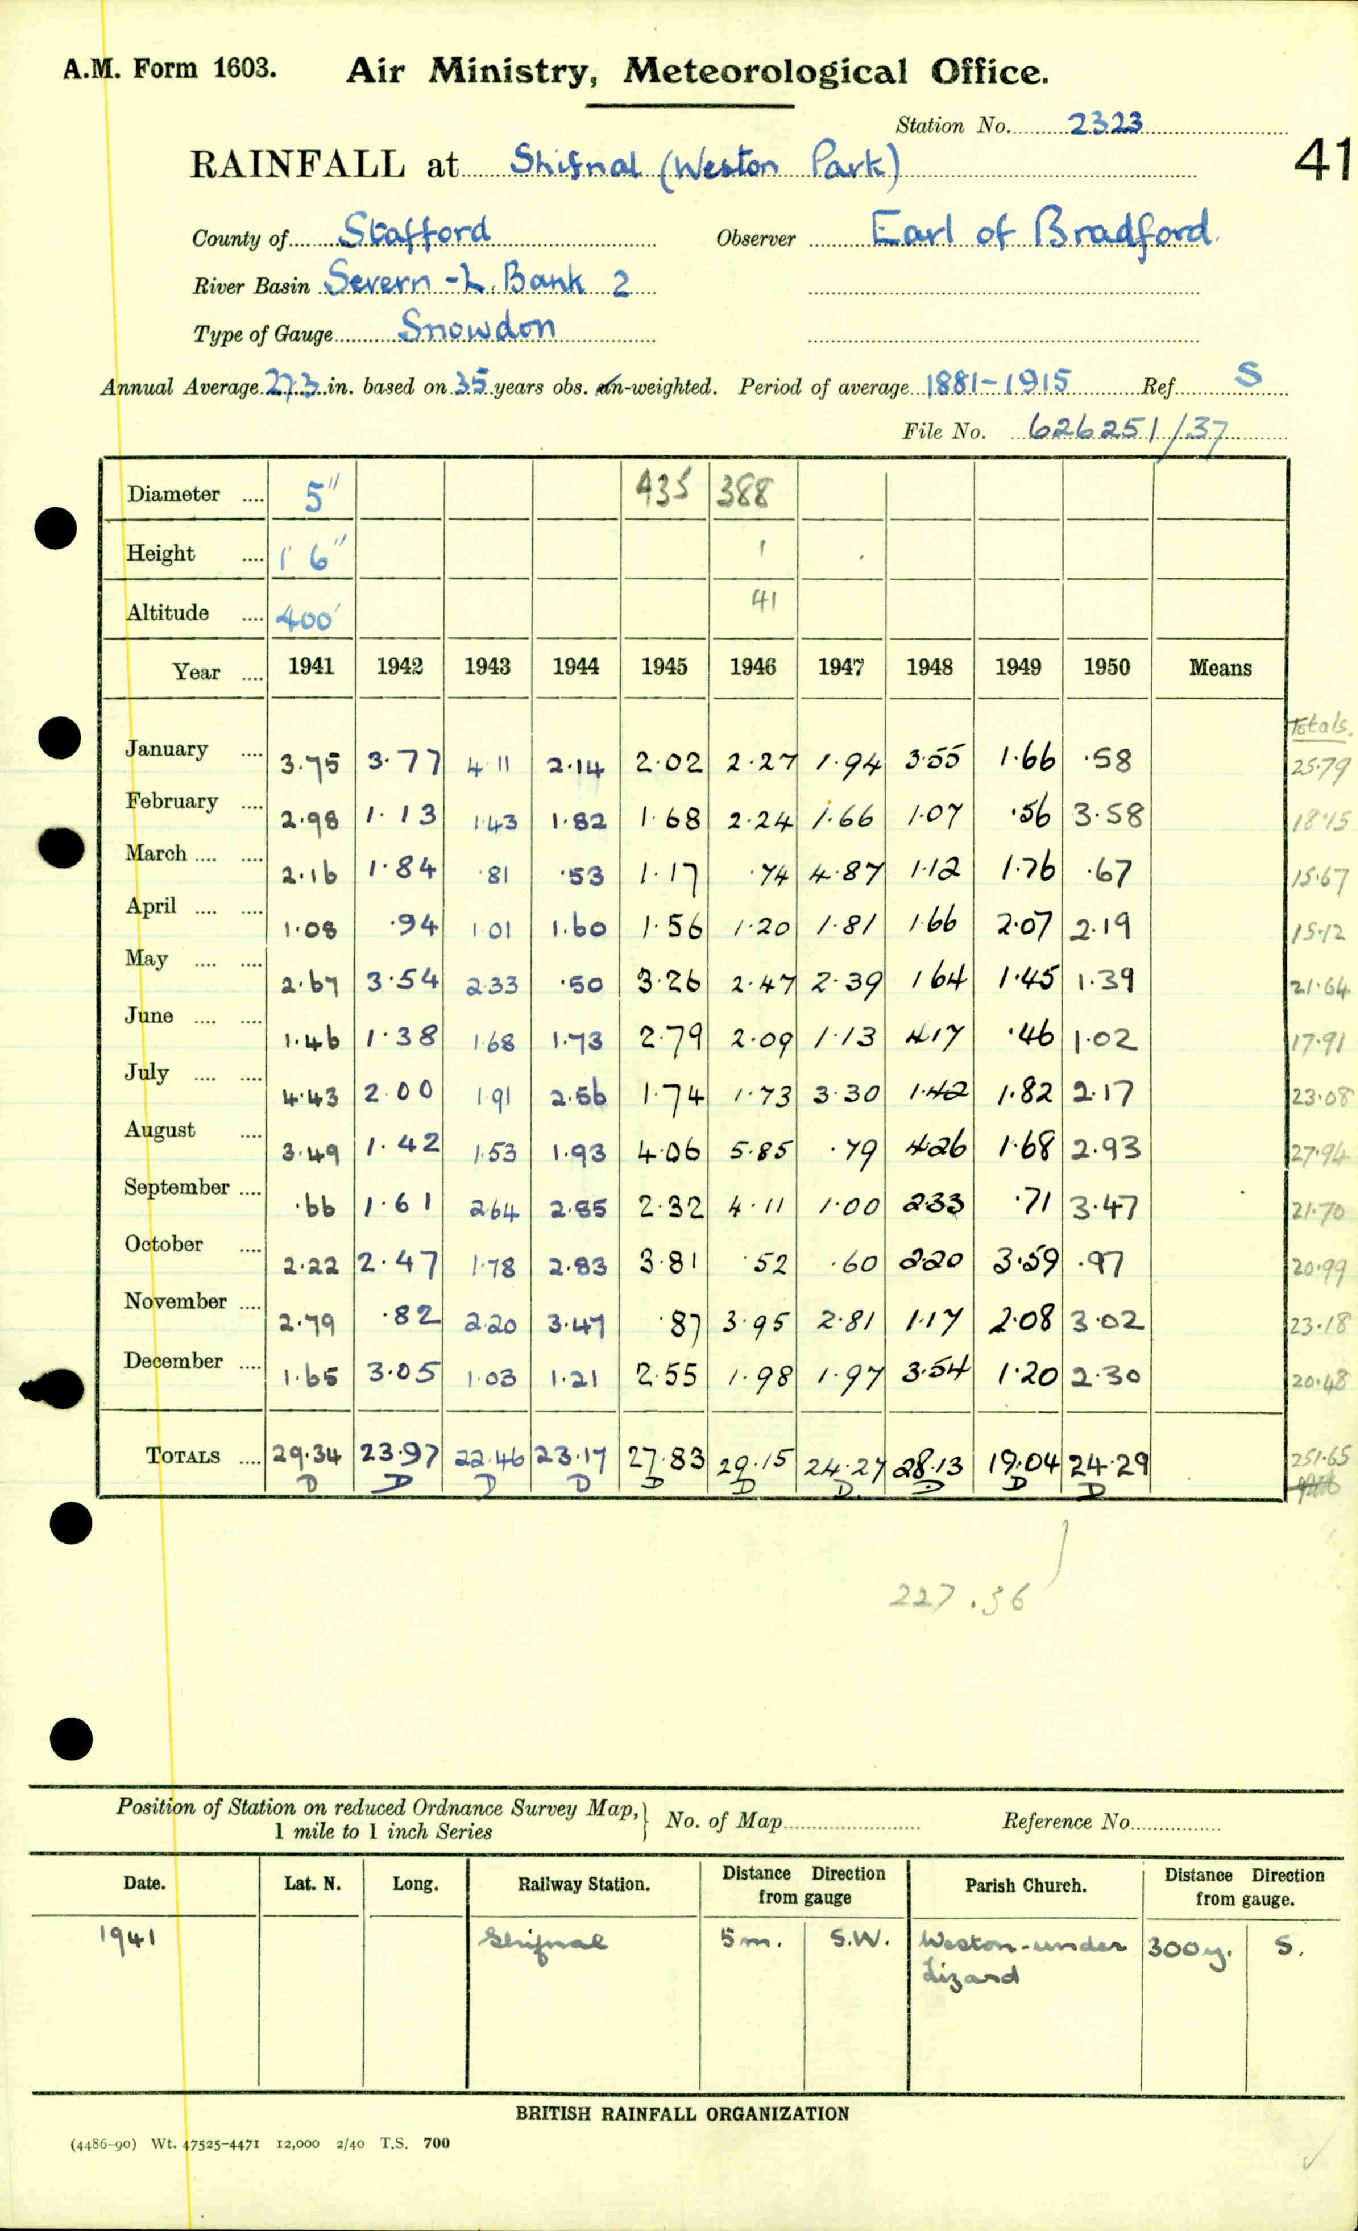 A.M. Form 1603. Air Ministry, Meteorological Office.
Station No. 2323
RAINFALL at Shifnal (Weston Park) 41
County of Stafford Observer Earl of Bradford
River Basin Severn - L. Bank 2
Type of Gauge Snowdon
Annual Average 27.3 in. based on 35 years obs. un-weighted. Period of average 1881-1915 Ref S
File No. 626251/37
Diameter .... 5" 435 388
Height .... 1' 6" 1
Altitude .... 400' 41
Year .... 1941 1942 1943 1944 1945 1946 1947 1948 1949 1950 Means
Totals.
January .... 3.75 3.77 4.11 2.14 2.02 2.27 1.94 3.55 1.66 .58 25.79
February .... 2.98 1.13 1.43 1.82 1.68 2.24 1.66 1.07 .56 3.58 18.15
March .... .... 2.16 1.84 .81 .53 1.17 .74 4.87 1.12 1.76 .67 15.67
April .... .... 1.08 .94 1.01 1.60 1.56 1.20 1.81 1.66 2.07 2.19 15.12
May .... .... 2.67 3.54 2.33 .50 3.26 2.47 2.39 1.64 1.45 1.39 21.64
June .... .... 1.46 1.38 1.68 1.73 2.79 2.09 1.13 4.17 .46 1.02 17.91
July .... .... 4.43 2.00 1.91 2.56 1.74 1.73 3.30 1.42 1.82 2.17 23.08
August .... 3.49 1.42 1.53 1.93 4.06 5.85 .79 4.26 1.68 2.93 27.94
September .... .66 1.61 2.64 2.85 2.32 4.11 1.00 2.33 .71 3.47 21.70
October .... 2.22 2.47 1.78 2.83 3.81 .52 .60 2.20 3.59 .97 20.99
November .... 2.79 .82 2.20 3.47 .87 3.95 2.81 1.17 2.08 3.02 23.18
December .... 1.65 3.05 1.03 1.21 2.55 1.98 1.97 3.54 1.20 2.30 20.48
TOTALS .... 29.34 23.97 22.46 23.17 27.83 29.15 24.27 28.13 19.04 24.29 251.65
D D D D D D D D D D
227.36
Position of Station on reduced Ordnance Survey Map, 1 mile to 1 inch Series } No. of Map Reference No.
Date. Lat. N. Long. Railway Station. Distance Direction from gauge Parish Church. Distance Direction from gauge.
1941 Shifnal 5 m. S.W. Weston-under 300 y. S.
Lizard
BRITISH RAINFALL ORGANIZATION
(4486-90) Wt. 47525-4471 12,000 2/40 T.S. 700